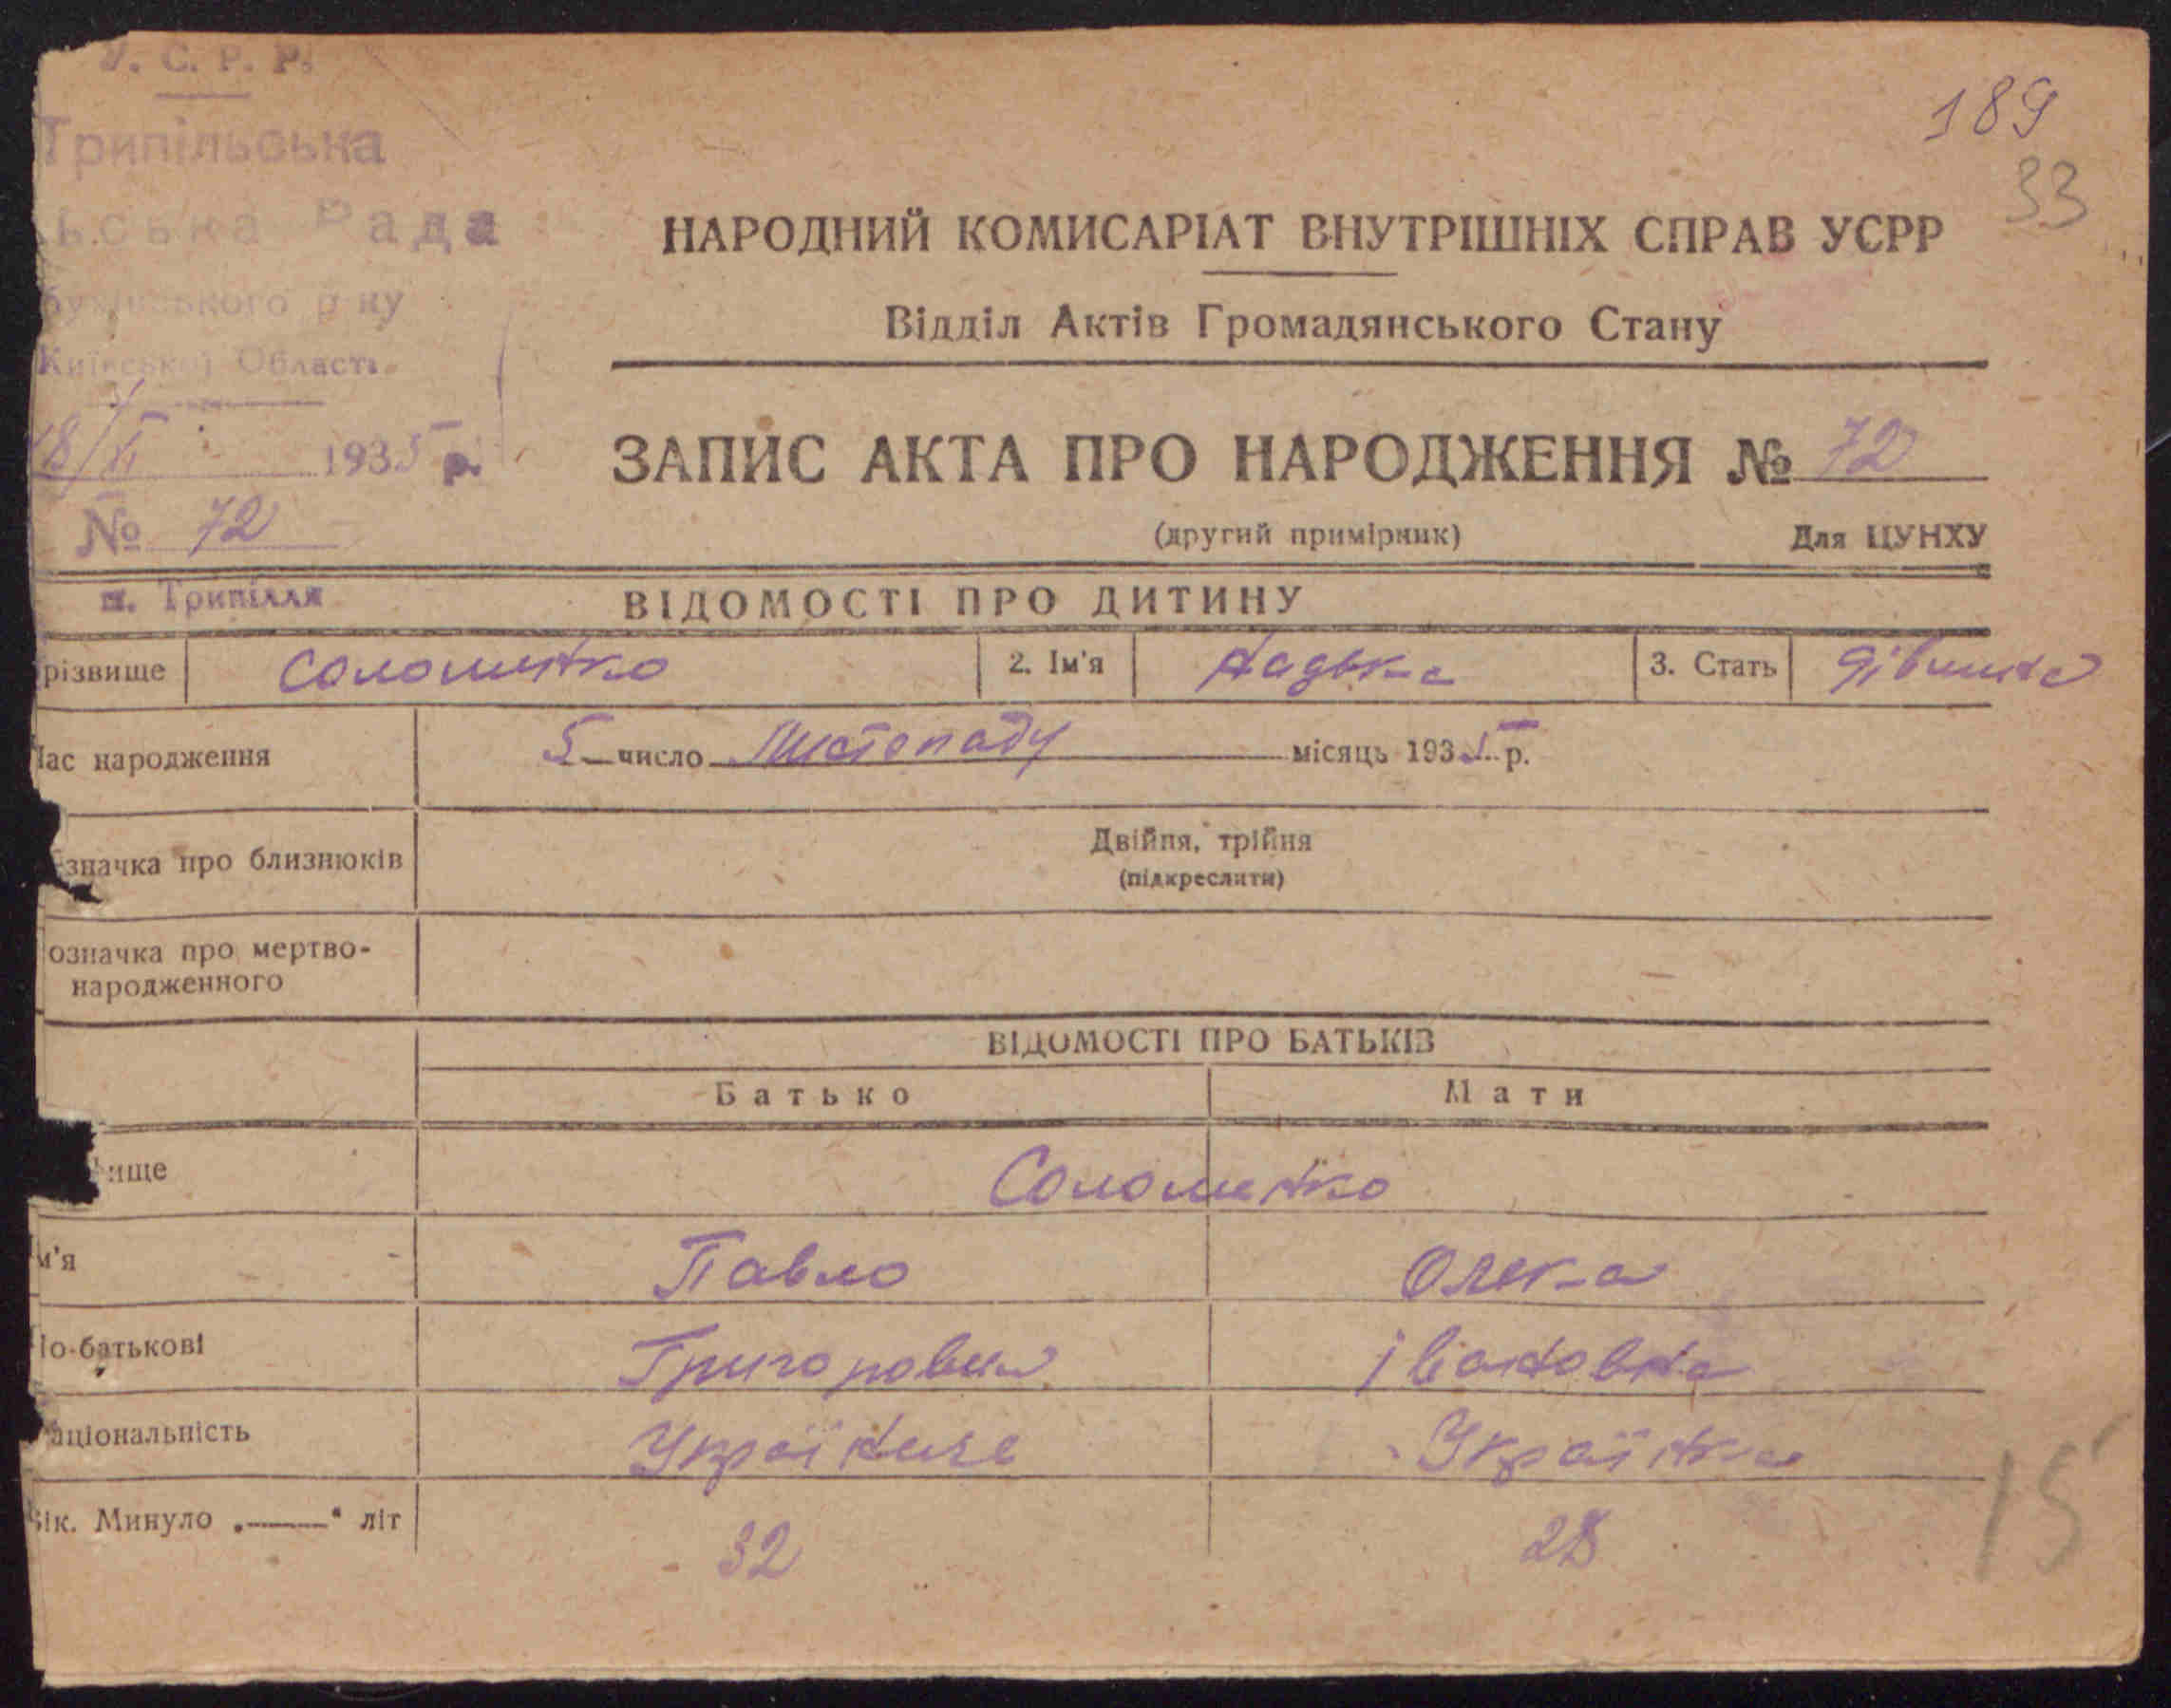 У. С. Р. Р.
Трипільська
льська Рада
ського р ну
Київської Області
18/XI 1935 р.
№ 72
189
33
НАРОДНИЙ КОМИСАРІАТ ВНУТРІШНІХ СПРАВ УСРР
Відділ Актів Громадянського Стану
ЗАПИС АКТА ПРО НАРОДЖЕННЯ № 72
(другий примірник) Для ЦУНХУ
м. Трипілля
ВІДОМОСТІ ПРО ДИТИНУ
різвище Соломенко 2. Ім'я Надька 3. Стать дівчина
Час народження 5 число Листопаду місяць 1935 р.
значка про близнюків Двійня, трійня
(підкреслити)
означка про мертво-
народженного
ВІДОМОСТІ ПРО БАТЬКІВ
Батько Мати
вище Соломенко
м'я Павло Олека
По-батькові Григорович Івановна
аціональність Українець Українка
Вік. Минуло „——“ літ 32 28
15